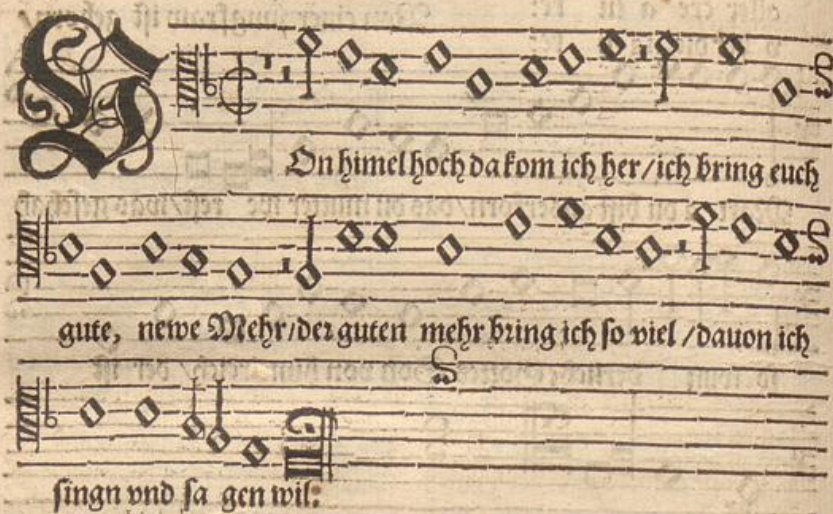 VOn himel hoch da kom ich her/ich bring euch
gute, newe Mehr/der guten mehr bring ich so viel/dauon ich
singn vnd sa gen wil: